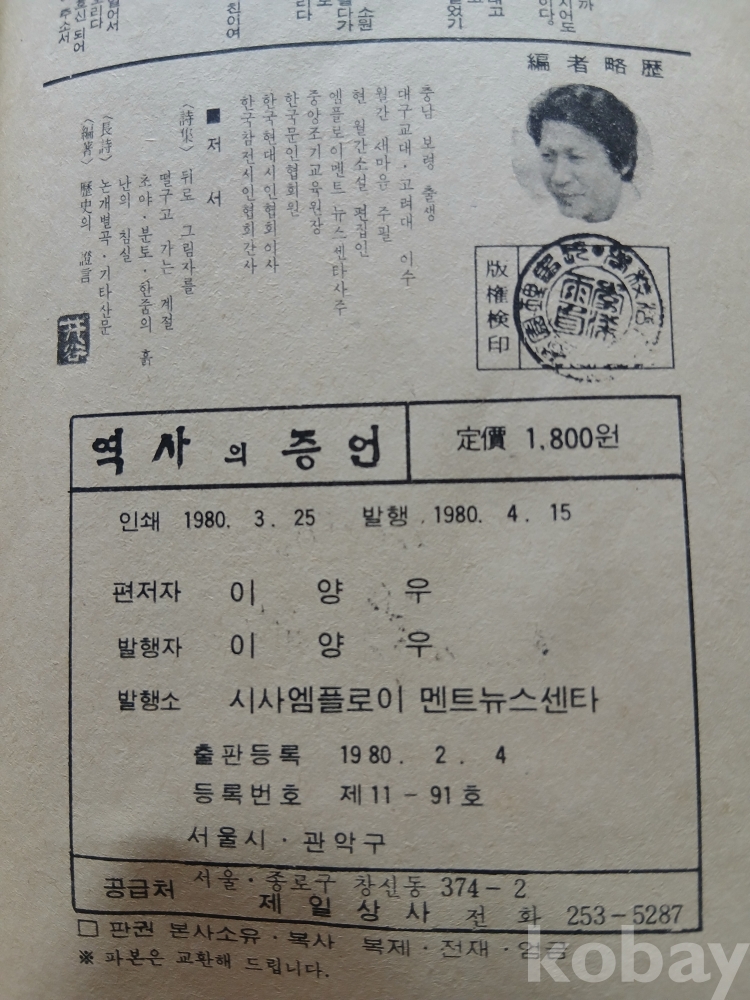 編者略歴
충남 보령 출생
대구교대·고려대 이수
월간 새마음 주필
현 월간소설 편집인
엠플로이멘트 뉴스센타사주
중앙조기교육원장
한국문인협회원
한국현대시인협회이사
한국참전시인협회간사
■ 저서
〈詩集〉 뒤로 그림자를
떨구고 가는 계절
초야·분토·한줌의 흙
난의 침실
〈長詩〉 논개별곡·기타산문
〈編著〉 歷史의 證言
井谷
版権検印
역사의 증언
定價 1,800원
인쇄 1980. 3. 25 발행 1980. 4. 15
편저자 이 양 우
발행자 이 양 우
발행소 시사엠플로이 멘트뉴스센타
출판등록 1980. 2. 4
등록번호 제11-91호
서울시·관악구
공급처 서울·종로구 창신동 374-2
제일상사 전화 253-5287
□ 판권 본사소유·복사 복제·전재·엄금
※ 파본은 교환해 드립니다.
kobay